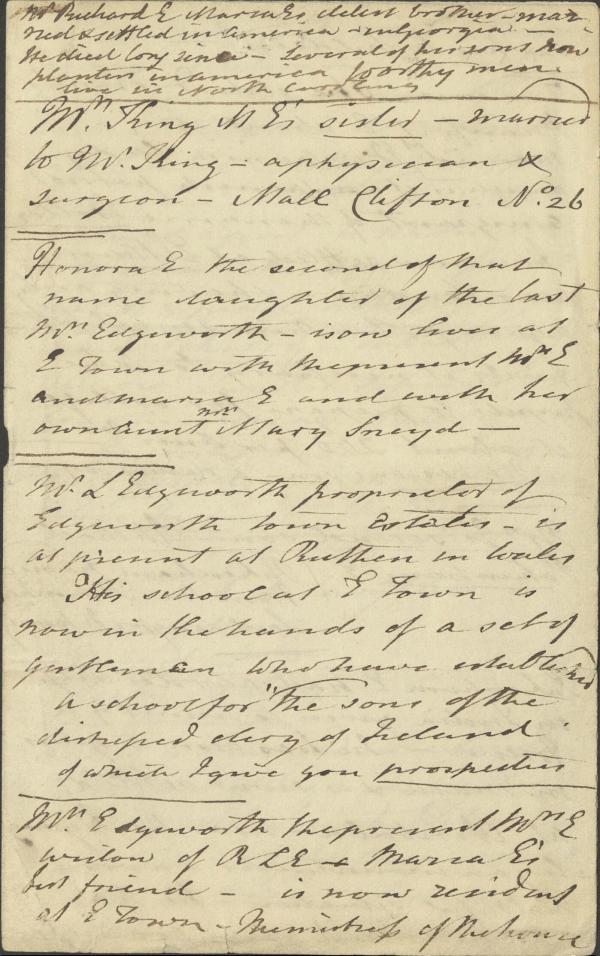 Mr Richard E Maria Es eldest brother - mar-
ried & settled in America - in Georgia -
He died long since - Several of his sons now
planters in america worthy men
live in North Carolina
Mrs. King M E's sister - married
to Mr. King - a physician &
surgeon - Mall Clifton No. 26
Honora E the second of that
name daughter of the last
Mrs Edgeworth - is now lives at
E Town with the present Mrs E
and maria E and with her
own aunt Mrs Mary Sneyd -
Mr. L Edgeworth proprietor of
Edgeworth town Estates - is
at present at Ruthen in Wales
His school at E Town is
now in the hands of a set of
gentlemen who have established
a school for "the sons of the
distressed clergy of Ireland
of which I give you prospectus
Mrs Edgeworth the present Mrs E
widow of R L E & Maria E's
best friend - is now resident
at E Town - The mistress of the house